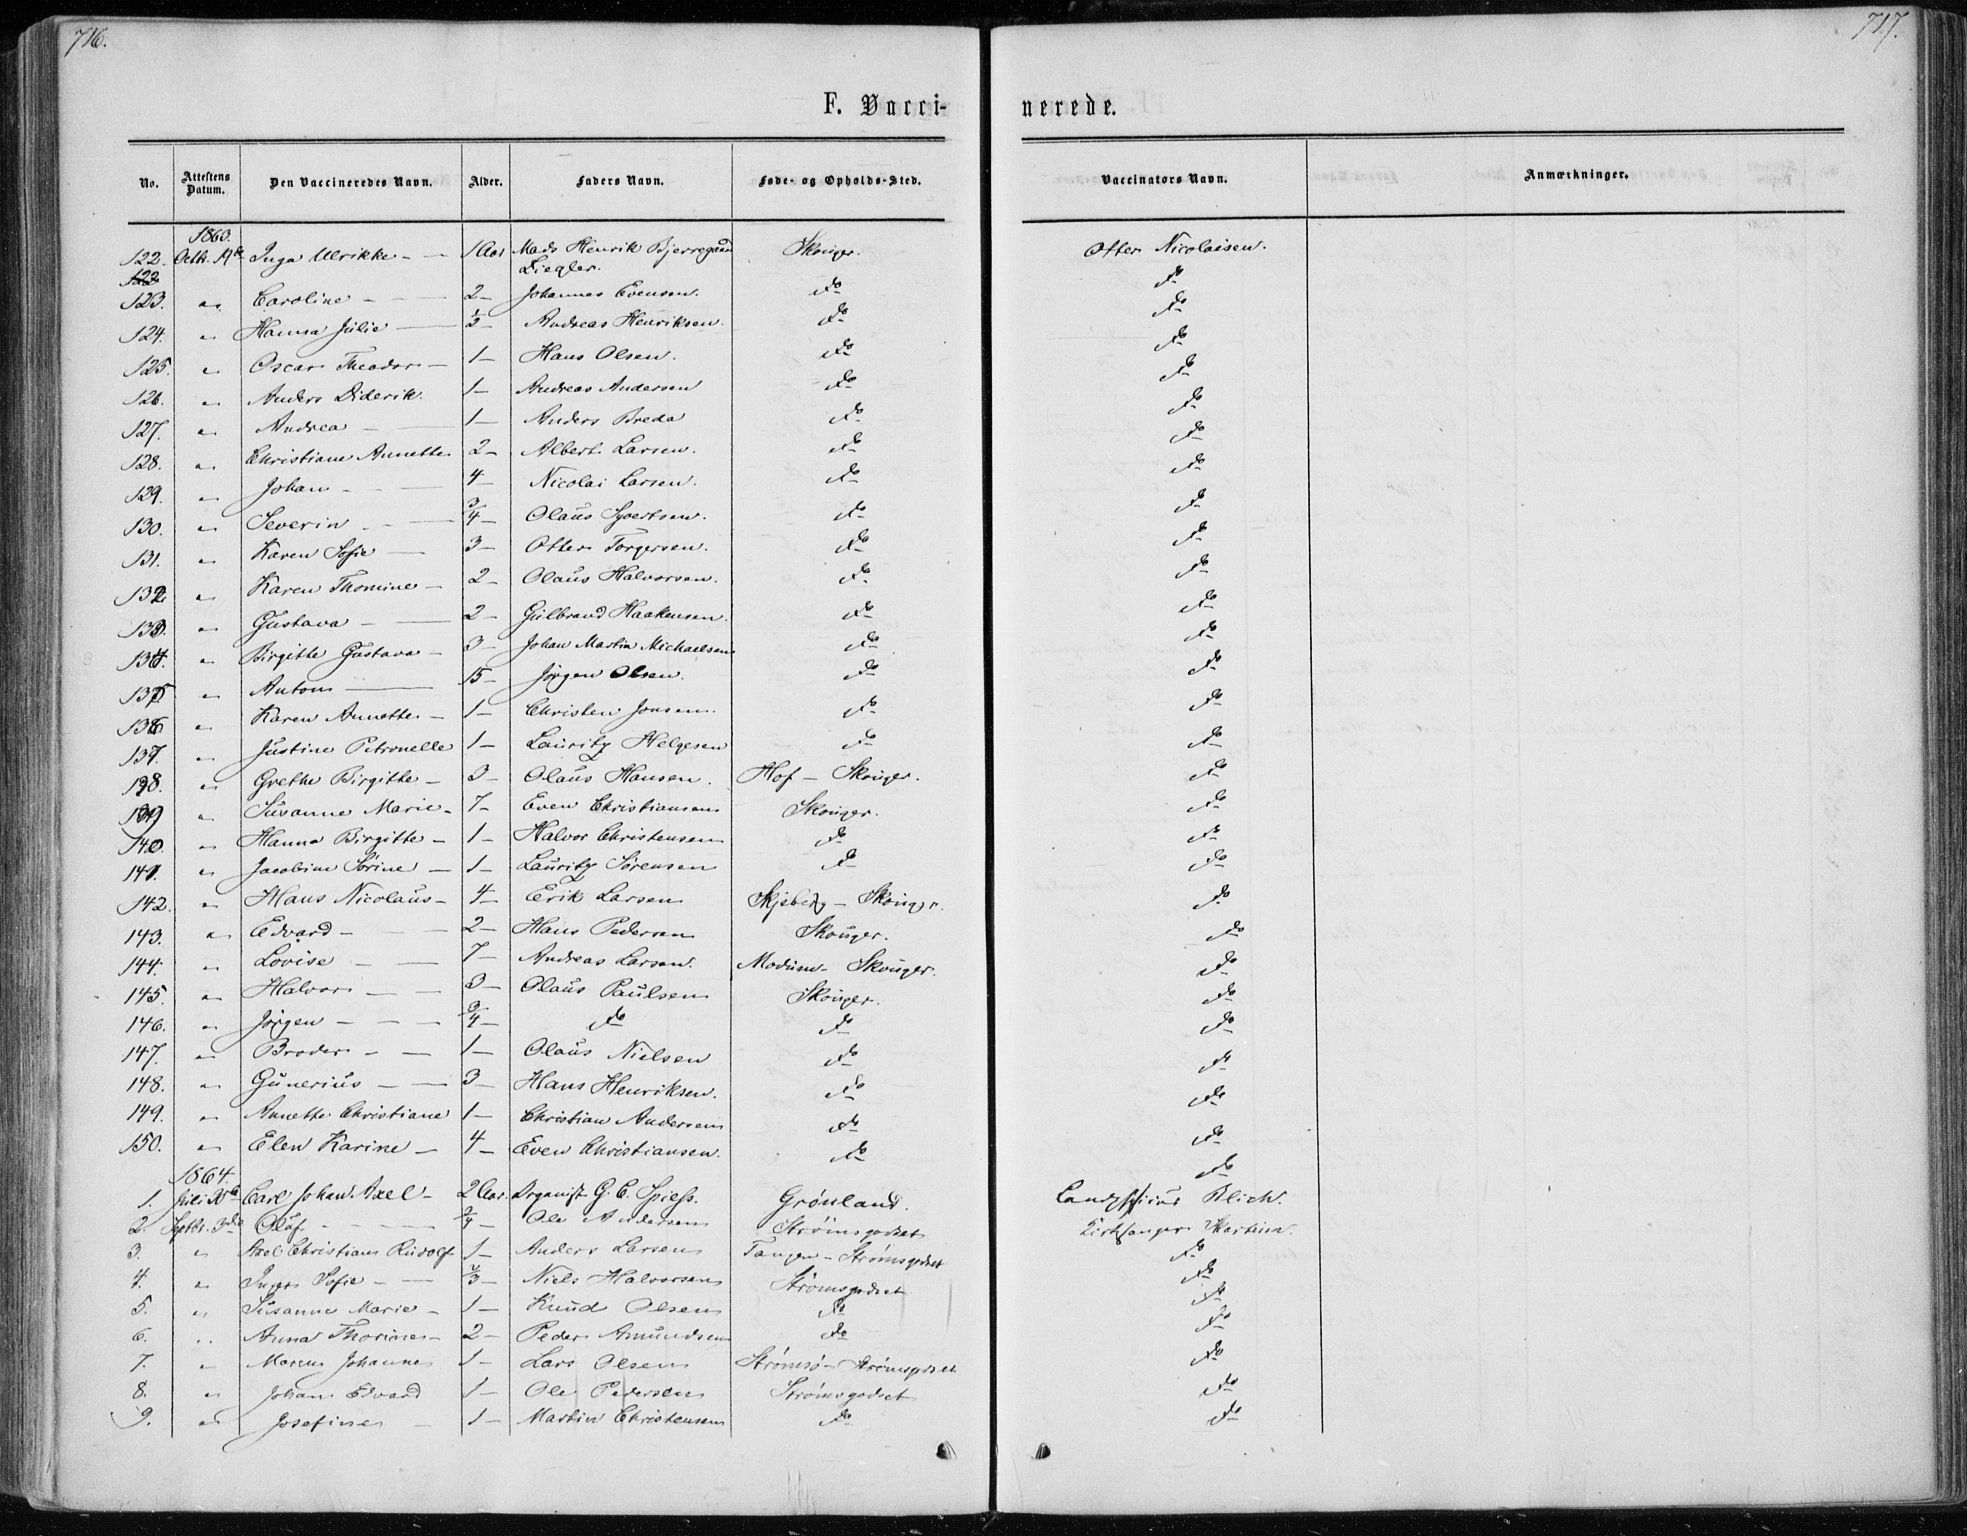 716.
717.
F. Vacci-
nerede.
No. Attestens Datum. Den Vaccineredes Navn. Alder. Faders Navn. Føde- og Opholds-Sted. Vaccinators Navn. Anmærkninger.
1863.
122. Octbr. 19de Inga Ulrikke - - 1 Aar Mads Henrik Bjerregaard Ziegler. Skouger. Otter Nicolaisen.
123
123. " Caroline - 2 - Johannes Evensen. do do
124. " Hanna Julie 1/2 - Andreas Henriksen. do do
125. " Oscar Theodor - 1 - Hans Olsen. do do
126. " Anders Diderik. 1 - Andreas Andersen do do
127. " Andrea - 1 - Anders Breda do do
128. " Christiane Annette 2 - Albert Larsen. do do
129. " Johan - - 4 - Nicolai Larsen. do do
130. " Severin - 3/4 - Olaus Syvertsen. do do
131. " Karen Sofie - 3 - Otter Torgersen. do do
132. " Karen Thomine - 2 - Olaus Halvorsen. do do
133. " Gustava - 2 - Gulbrand Haakensen. do do
134. " Birgitte Gustava - 3 - Johan Martin Michaelsen do do
135. " Anton 15 - Jørgen Olsen. do do
136. " Karen Annette - 1 - Christen Jonsen. do do
137. " Justine Petronelle 1 - Lauritz Helgesen do do
138. " Grethe Birgitte - 3 - Olaus Hansen. Hof - Skouger. do
139 " Susanne Marie - 7 - Even Christiansen Skouger. do
140. " Hanna Birgitte - 1 - Halvor Christensen do do
141. " Jacobine Sørine - 1 - Lauritz Sørensen do do
142. " Hans Nicolaus - 4 - Erik Larsen Skjeberg - Skouger. do
143. " Edvard - - 2 - Hans Pedersen Skouger. do
144. " Lovise - - 7 - Andreas Larsen. Modum - Skouger. do
145. " Halvor - - 3 - Olaus Paulsen Skouger. do
146. " Jørgen - - - 3/4 - do do do
147. " Broder - - 1 - Olaus Nielsen do do
148. " Gunerius - - 3 - Hans Henriksen. do do
149. " Annette Christiane 1 - Christian Andersen do do
150. " Elen Karine - 4 - Even Christiansen. do do
1864. do
1. Juli Carl Johan Axel - 2 Aar. Organist G. C. Spiess. Grønland. Blich.
2. Septbr. 3die Oluf - - 3/4 - Ole Andersen Strømsgodset Kirkesanger Martinsen.
3. " Axel Christian Rudolf 1 - Anders Larsen Tangen - Strømsgodset do
4. " Inger Sofie - - Niels Halvorsen Strømsgodset do
5. " Susanne Marie - 1 - Knud Olsen do do
6. " Anna Thorine - 2 - Peder Amundsen do do
7. " Marcus Johannes 1 - Lars Olsen Strømsø - Strømsgodset do
8. " Johan Edvard 1 - Ole Pedersen Strømsgodset do
9. " Josefine - 1 - Martin Christensen do do